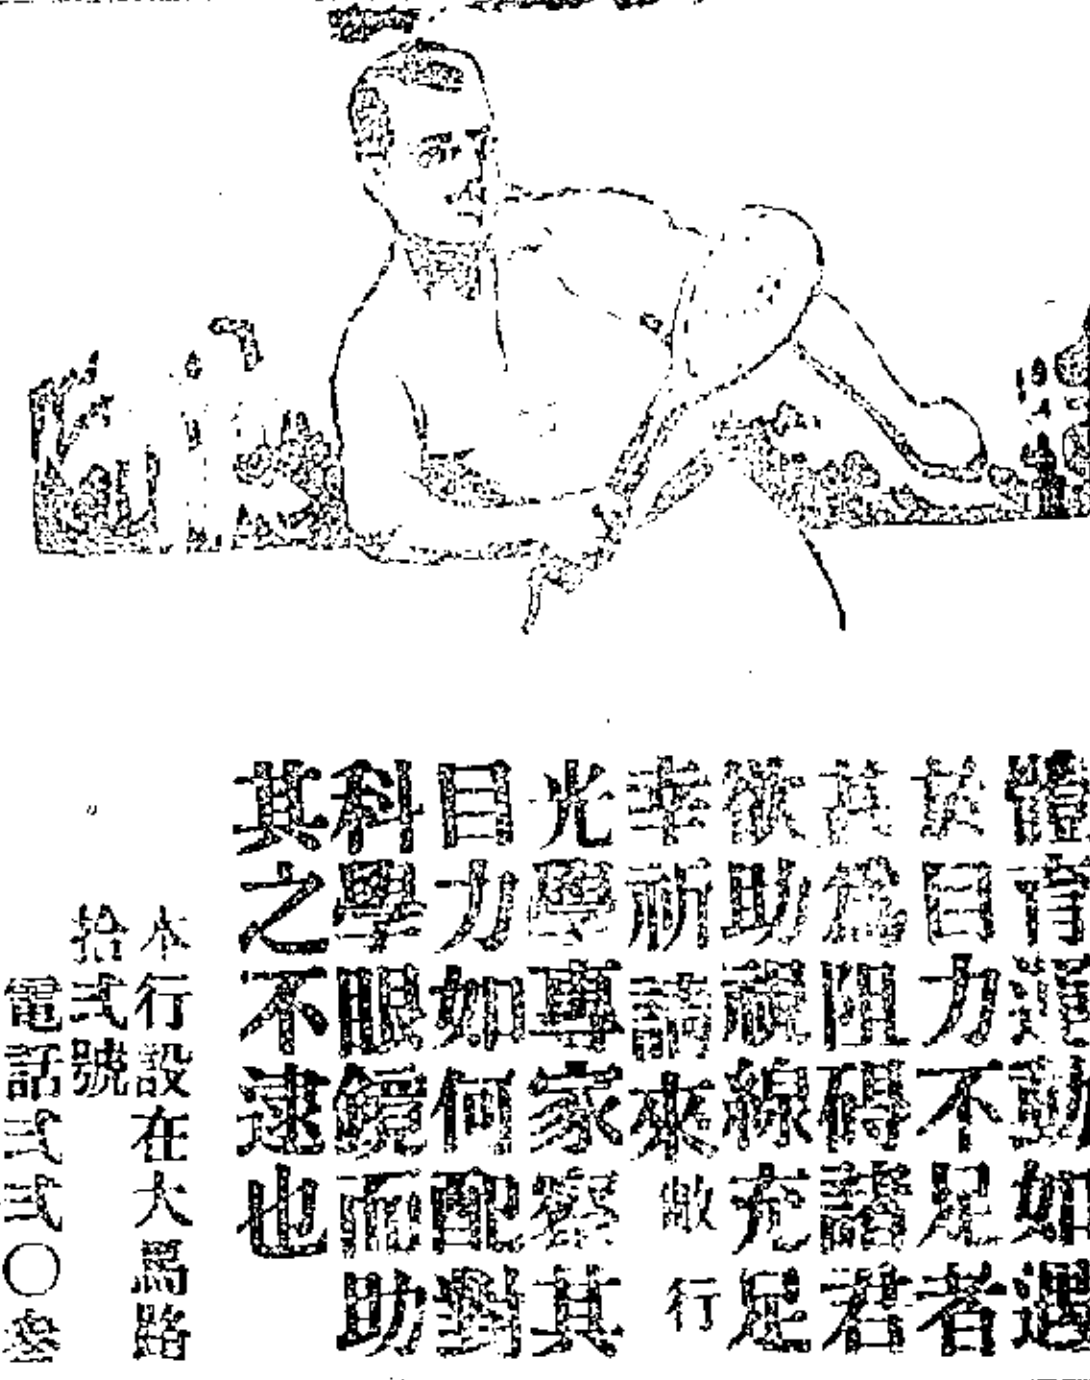 體育運動如遇
於目力不足者
其為阻碍諸君
欲助視線充足
幸祈請來敝行
光學專家察其
目力如何配對
科學眼鏡而助
其之不逮也
本行設在大馬路
拾弍號
電話弍弍〇叁